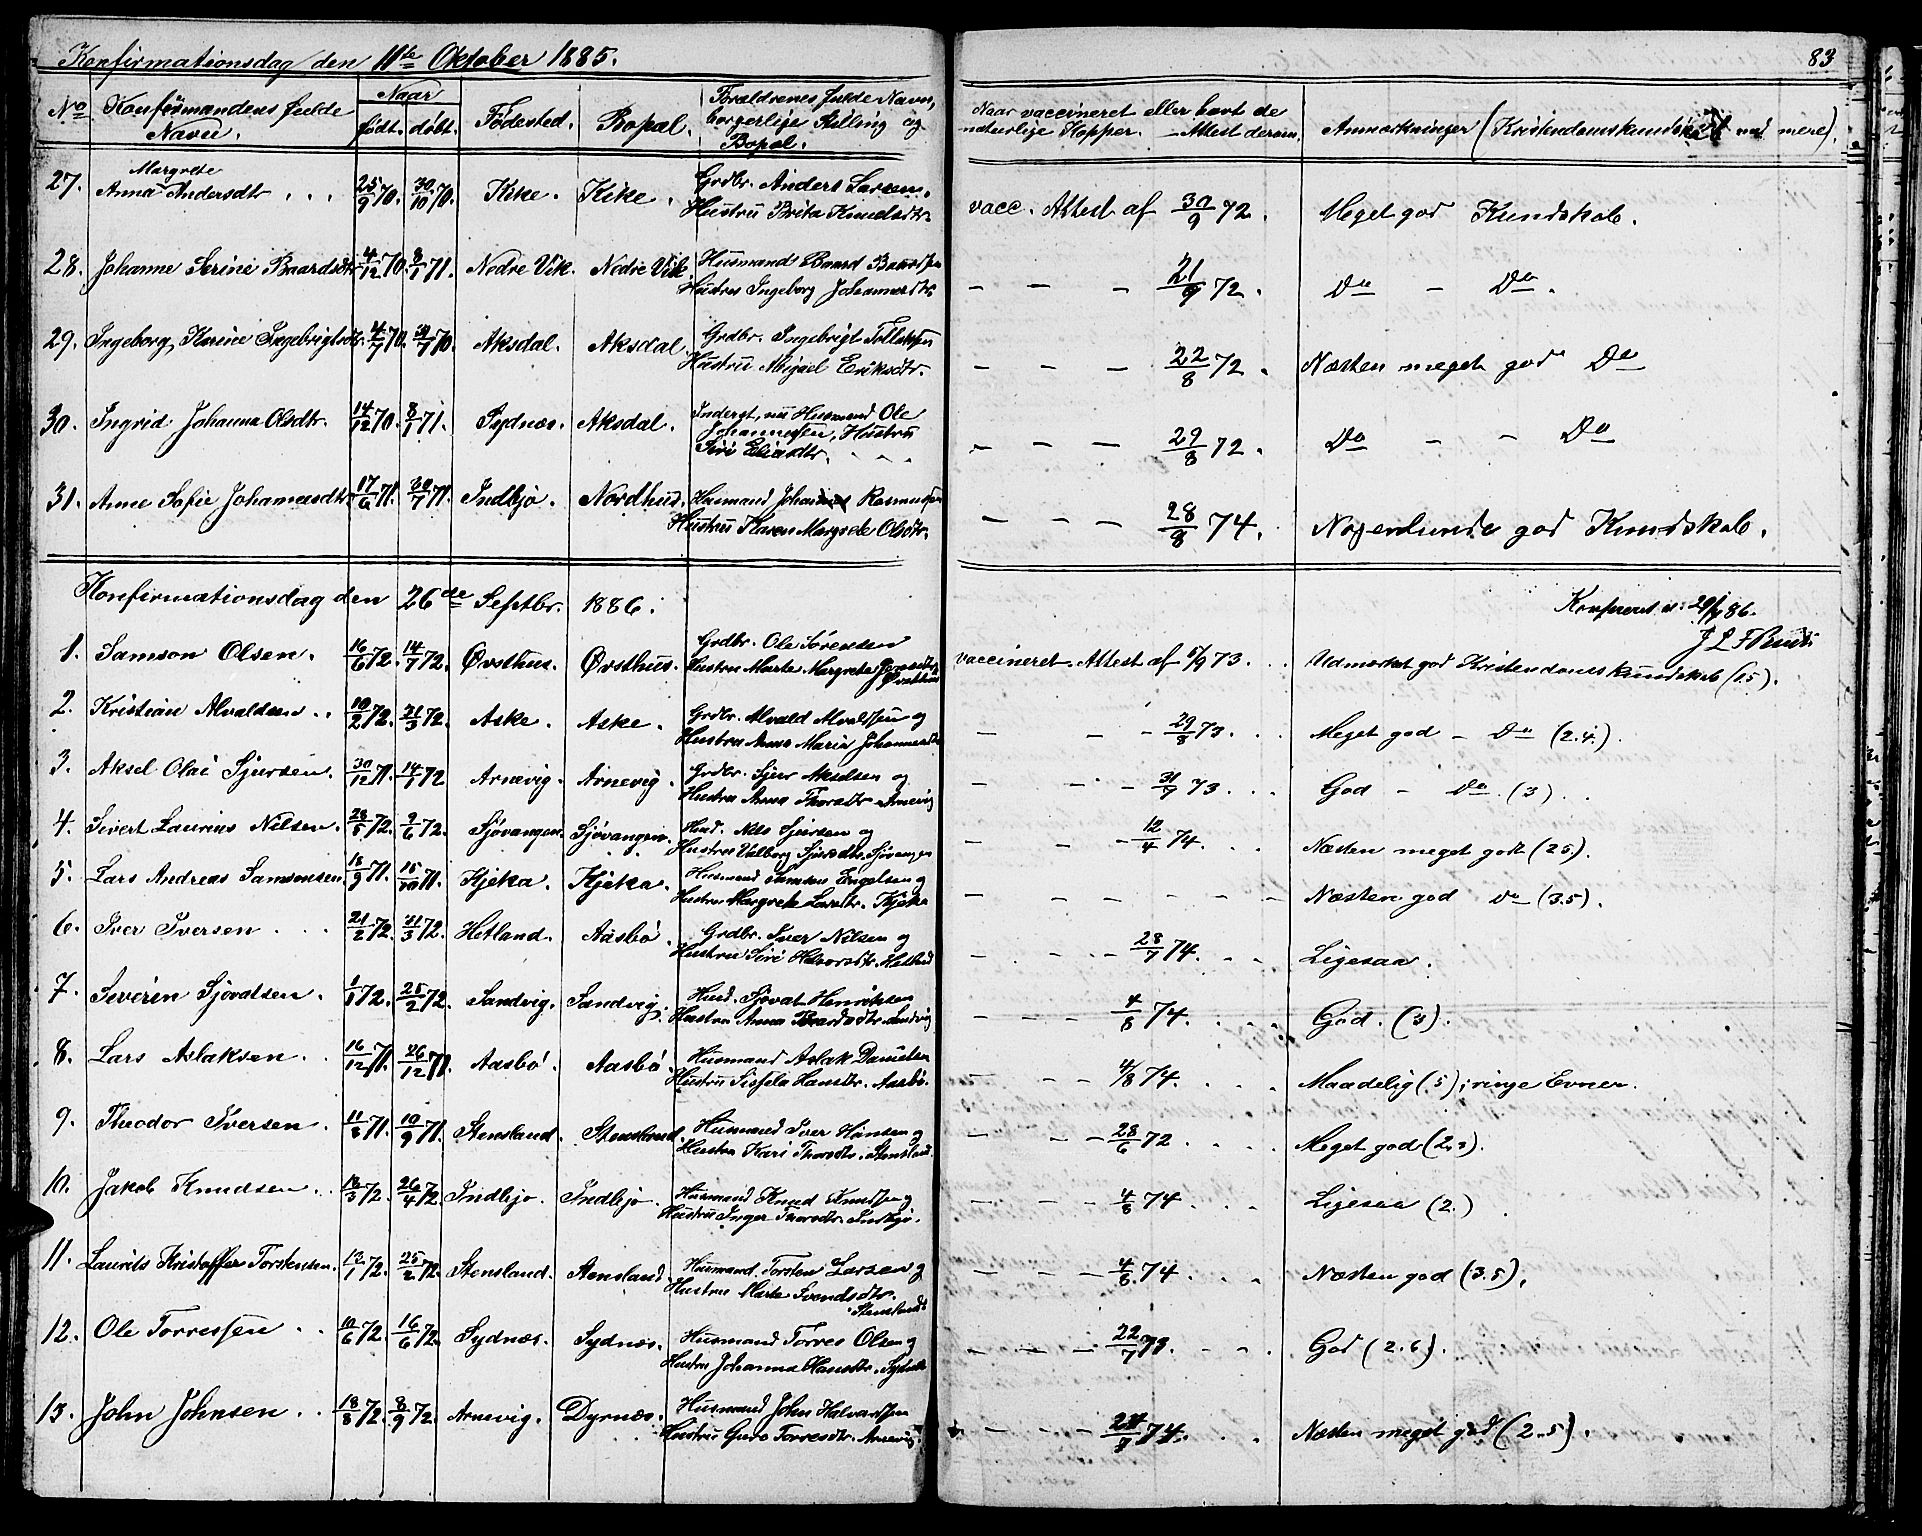 Konfirmationsdag den 11te Oktober 1885.
83
No Konfirmandens fulde Navn. Naar født. døbt. Fødested. Bopæl. Forældrenes fulde Navn, borgerlige Stilling og Bopæl. Naar vaccineret eller havt de naturlige Kopper. - Attest derom. Anmærkninger (Kristendomskundskab med mere).
27. Anna Margrete Andersdtr . . . 25/9 70. 30/10 70. Kike. Kike. Grdbr. Anders Larsen. Hustru Brita Knudsdtr. vacc. Attest af 30/9 72. Meget god Kundskab.
28. Johanne Serine Baardsdtr 4/12 70. 8/1 71. Nedre Vik. Nedre Vik. Husmand Baard Baardsen Hustru Ingeborg Johannesdtr. - - - 21/9 72. Do - Do.
29. Ingeborg Karine Ingebrigtsdtr. 4/7 70. 31/7 70. Aksdal. Aksdal. Grdbr. Ingebrigt Tollefsen Hustru Migael Eriksdtr. - - - 22/8 72. Næsten meget god Do
30. Ingrid Johanna Olsdtr. 14/12 70. 8/1 71. Sydnæs. Aksdal. Inderst, nu Husmand Ole Johannessen, Hustru Siri Eliasdtr. - - - 29/8 72. Do - - Do
31. Anne Sofie Johannesdtr. 17/6 71. 30/7 71. Indbjo. Nordhus. Husmand Johannes Rasmussen Hustru Karen Margrete Olsdtr. - - - 28/8 74. Nogenlunde god Kundskab.
Konfirmationsdag den 26de Septbr. 1886.
1. Samson Olsen. 16/6 72. 14/7 72. Øvsthus. Øvsthus. Grdbr. Ole Sørensen Hustru Marta Margreta Øvsthus vaccineret. Attest af 5/9 73. . . Udmærket god Kristendomskundskab (1.5).
2. Kristian Alvaldsen . . 10/2 72. 31/3 72. Aske. Aske. Grdbr. Alvald Alvaldsen og Hustru Anna Maria Johannesdtr - - - 29/8 73. . . Meget god - Do (2.4.).
3. Aksel Olai Sjursen. 30/12 71. 14/1 72 Arnevig. Arnevig. Grdbr. Sjur Akselsen og Hustru Anna Thorsdtr Arnevig - - - 31/7 73. . . God - Do. (3). .
4. Sivert Laurius Nilsen. 28/5 72. 9/6 72. Sjøvangen. Sjøvangen. Husd. Nils Sjursen og Hustru Valborg Sjursdtr. Sjøvangen - - - 12/4 74. . . Næsten meget godt (2.5).
5. Lars Andreas Samsonsen. 18/9 71. 15/10 71. Kjeka. Kjeka. Husmand Samson Engelsen og Hustru Margrete Larsdtr. Kjeka - - - - - - Næsten god Do (3.5).
6. Iver Iversen . . . 21/2 72. 31/3 72. Hetland. Aasbø. Grdbr. Iver Nilsen og Hustru Siri Halvorsdtr. Hetland - - - 28/7 74. . . Ligesaa.
7. Severin Sjovatsen. 1/1 72. 25/2 72. Sandvig. Sandvig. Husd. Sjovat Henriksen Hustru Anna Baardsdtr. Sandvig - - - 4/8 74. . . . God. (3).
8. Lars Aslaksen. . . 16/12 71. 26/12 71. Aasbø. Aasbø. Husmand Aslak Danielsen Hustru Sissela Hansdtr. Aasbø. - - - 4/8 74. . . . Maadelig (5); ringe Evner.
9. Theodor Iversen . 11/8 71. 10/9 71. Stensland. Stensland. Husmand Iver Hansen og Hustru Kari Thorsdtr. Stensland. - - - 28/6 72 . . . Meget god (2.2).
10. Jakob Knudsen . . 13/3 72. 26/4 72. Indbjo. Indbjo. Husmand Knud Knudsen og Hustru Inger Thorsdtr. Indbjo. - - - 4/8 74 . . . Ligesaa (2.)
11. Laurits Kristoffer Torstensen. 13/1 72. 25/2 72. Stensland. Stensland. Husmand Torsten Larsen og Hustru Marta Svendsdtr. Stensland. - - - 4/8 74. . . Næsten god (3.5).
12. Ole Torressen . . 10/6 72. 16/6 72. Sydnæs. Sydnæs. Husmand Torres Olsen og Hustru Johanna Hansdtr. Sydnæs - - - 22/7 73. - - . God (2.6).
13. John Johnsen . . 18/8 72. 8/9 72. Arnevig. Dyrnæs. Husmand John Halvorsen Hustru Guro Torresdtr. Arnevig - - - 74. . . . Næsten meget god (2.5).